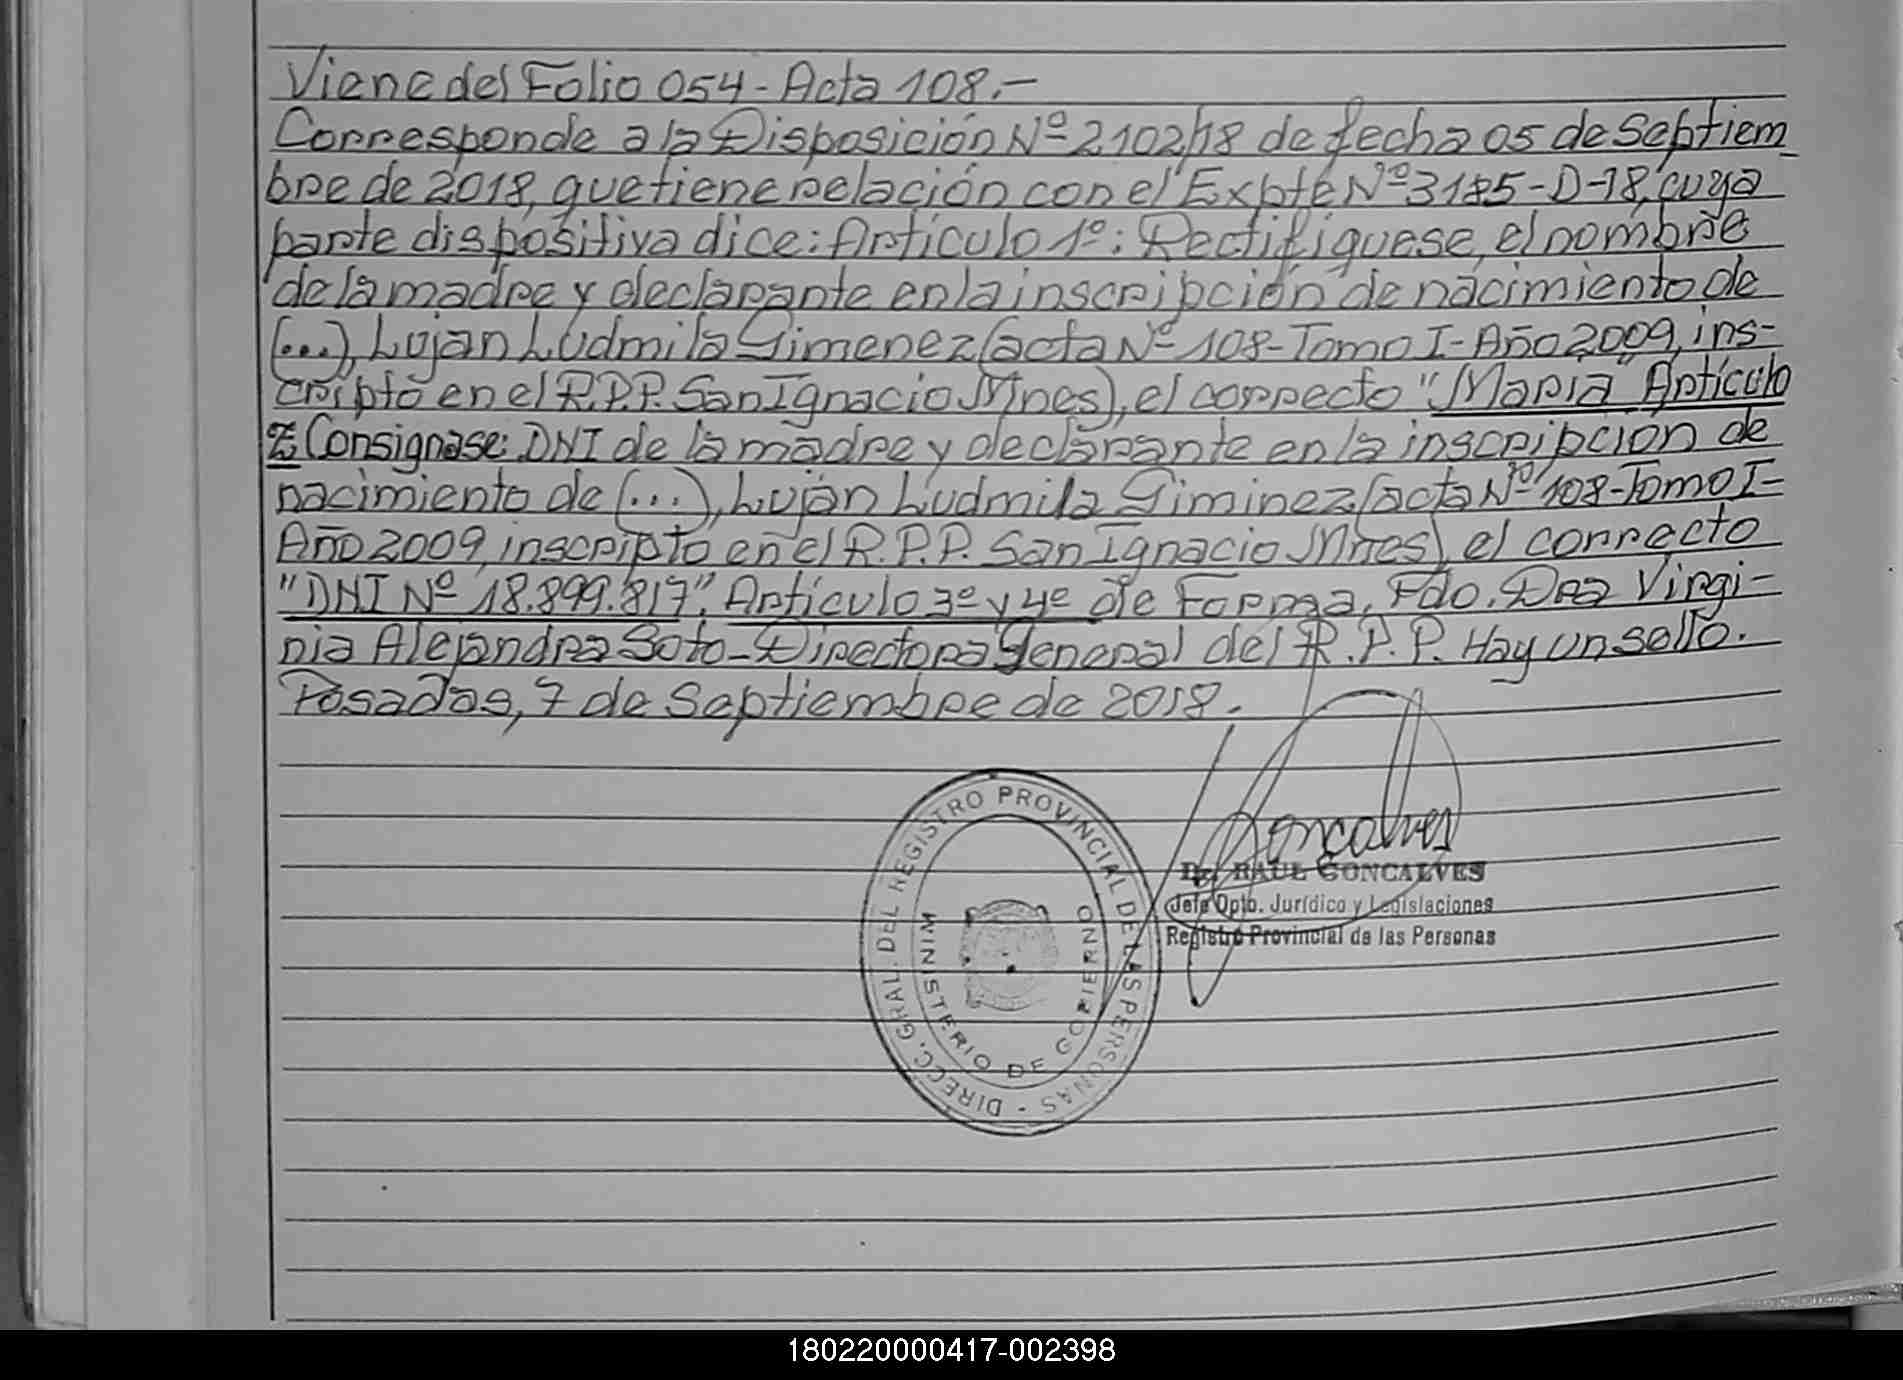 Viene del Folio 054 - Acta 108.-
Corresponde a la Disposición Nº 2102/18 de fecha 05 de Septiem
bre de 2018, que tiene relación con el Expte Nº 3185-D-18, cuya
parte dispositiva dice: Artículo 1º: Rectifíquese, el nombre
de la madre y declarante en la inscripción de nacimiento de
(...), Luján Ludmila Gimenez (acta Nº 108-Tomo I-Año 2009, ins-
cripto en el R.P.P. San Ignacio Mnes), el correcto "Maria" Artículo
2: Consignase: DNI de la madre y declarante en la inscripción de
nacimiento de (...), Luján Ludmila Giminez (acta Nº 108-Tomo I-
Año 2009, inscripto en el R.P.P. San Ignacio Mnes), el correcto
"DNI Nº 18.899.817". Artículo 3º y 4º de Forma. Fdo. Dra Virgi-
nia Alejandra Soto - Directora General del R.P.P. Hay un sello.
Posadas, 7 de Septiembre de 2018.
DIRECC. GRAL. DEL REGISTRO PROVINCIAL DE LAS PERSONAS -
MINISTERIO DE GOBIERNO
Goncalves
Dr. RAUL GONCALVES
Jefe Dpto. Jurídico y Legislaciones
Registro Provincial de las Personas
180220000417-002398